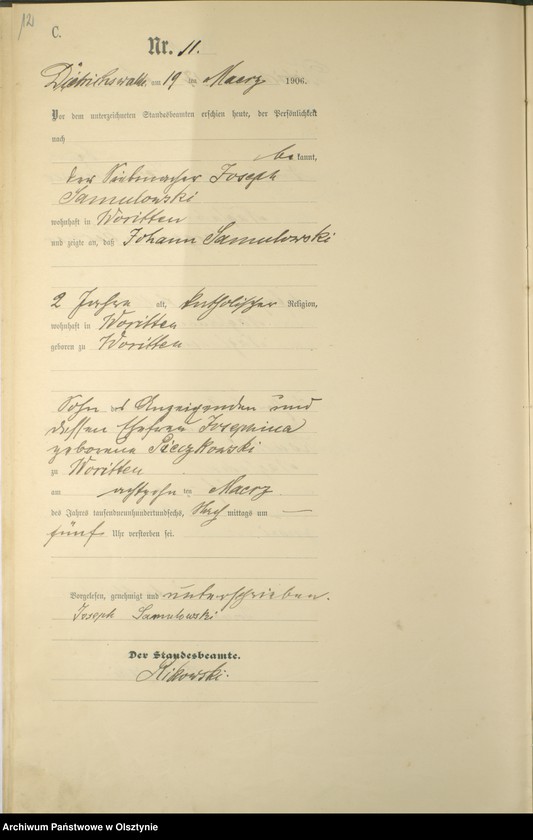 12
C.
Nr. 11.
Dietrichswalde, am 19 ten Maerz 1906.
Vor dem unterzeichneten Standesbeamten erschien heute, der Persönlichkeit
nach
be kannt,
der Joseph
Samulowski
wohnhaft in Woritten
und zeigte an, daß Johann Samulowski
2 Jahre alt, katholischer Religion,
wohnhaft in Woritten
geboren zu Woritten
Sohn des Anzeigenden und
dessen Ehefrau Josephina
geborene Pieczkowski
zu Woritten
am achtzehn ten Maerz
des Jahres tausendneunhundertundsechs, Nach mittags um —
fünf Uhr verstorben sei.
Vorgelesen, genehmigt und unterschrieben.
Joseph Samulowski
Der Standesbeamte.
Archiwum Państwowe w Olsztynie